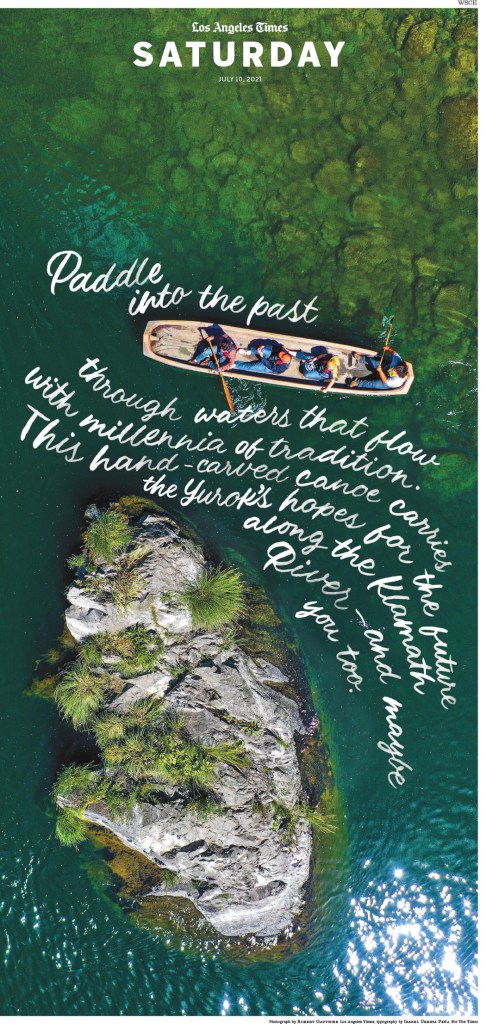 WSCE
Los Angeles Times
SATURDAY
JULY 10, 2021
Paddle
into the past
through waters that flow
with millennia of tradition.
This hand-carved canoe carries
the Yurok's hopes for the future
along the Klamath
River — and maybe
you too.
Photograph by Robert Gauthier Los Angeles Times, typography by Isabel Urbina Peña For The Times